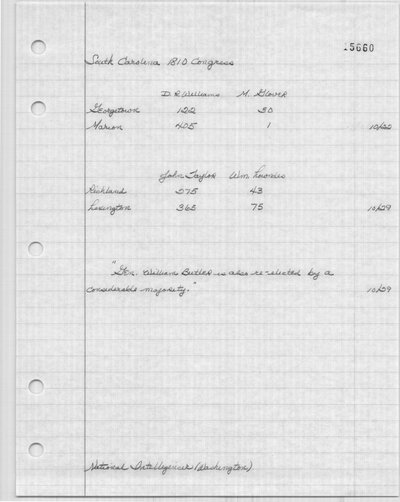 .5660
South Carolina 1810 Congress
D. R Williams M. Glover
Georgetown 122 30
Marion 405 1 10/22
John Taylor Wm. Lowndes
Richland 275 43
Lexington 365 75 10/29
"Gen. William Butler is also re-elected by a
considerable majority." 10/29
National Intelligencer (Washington)